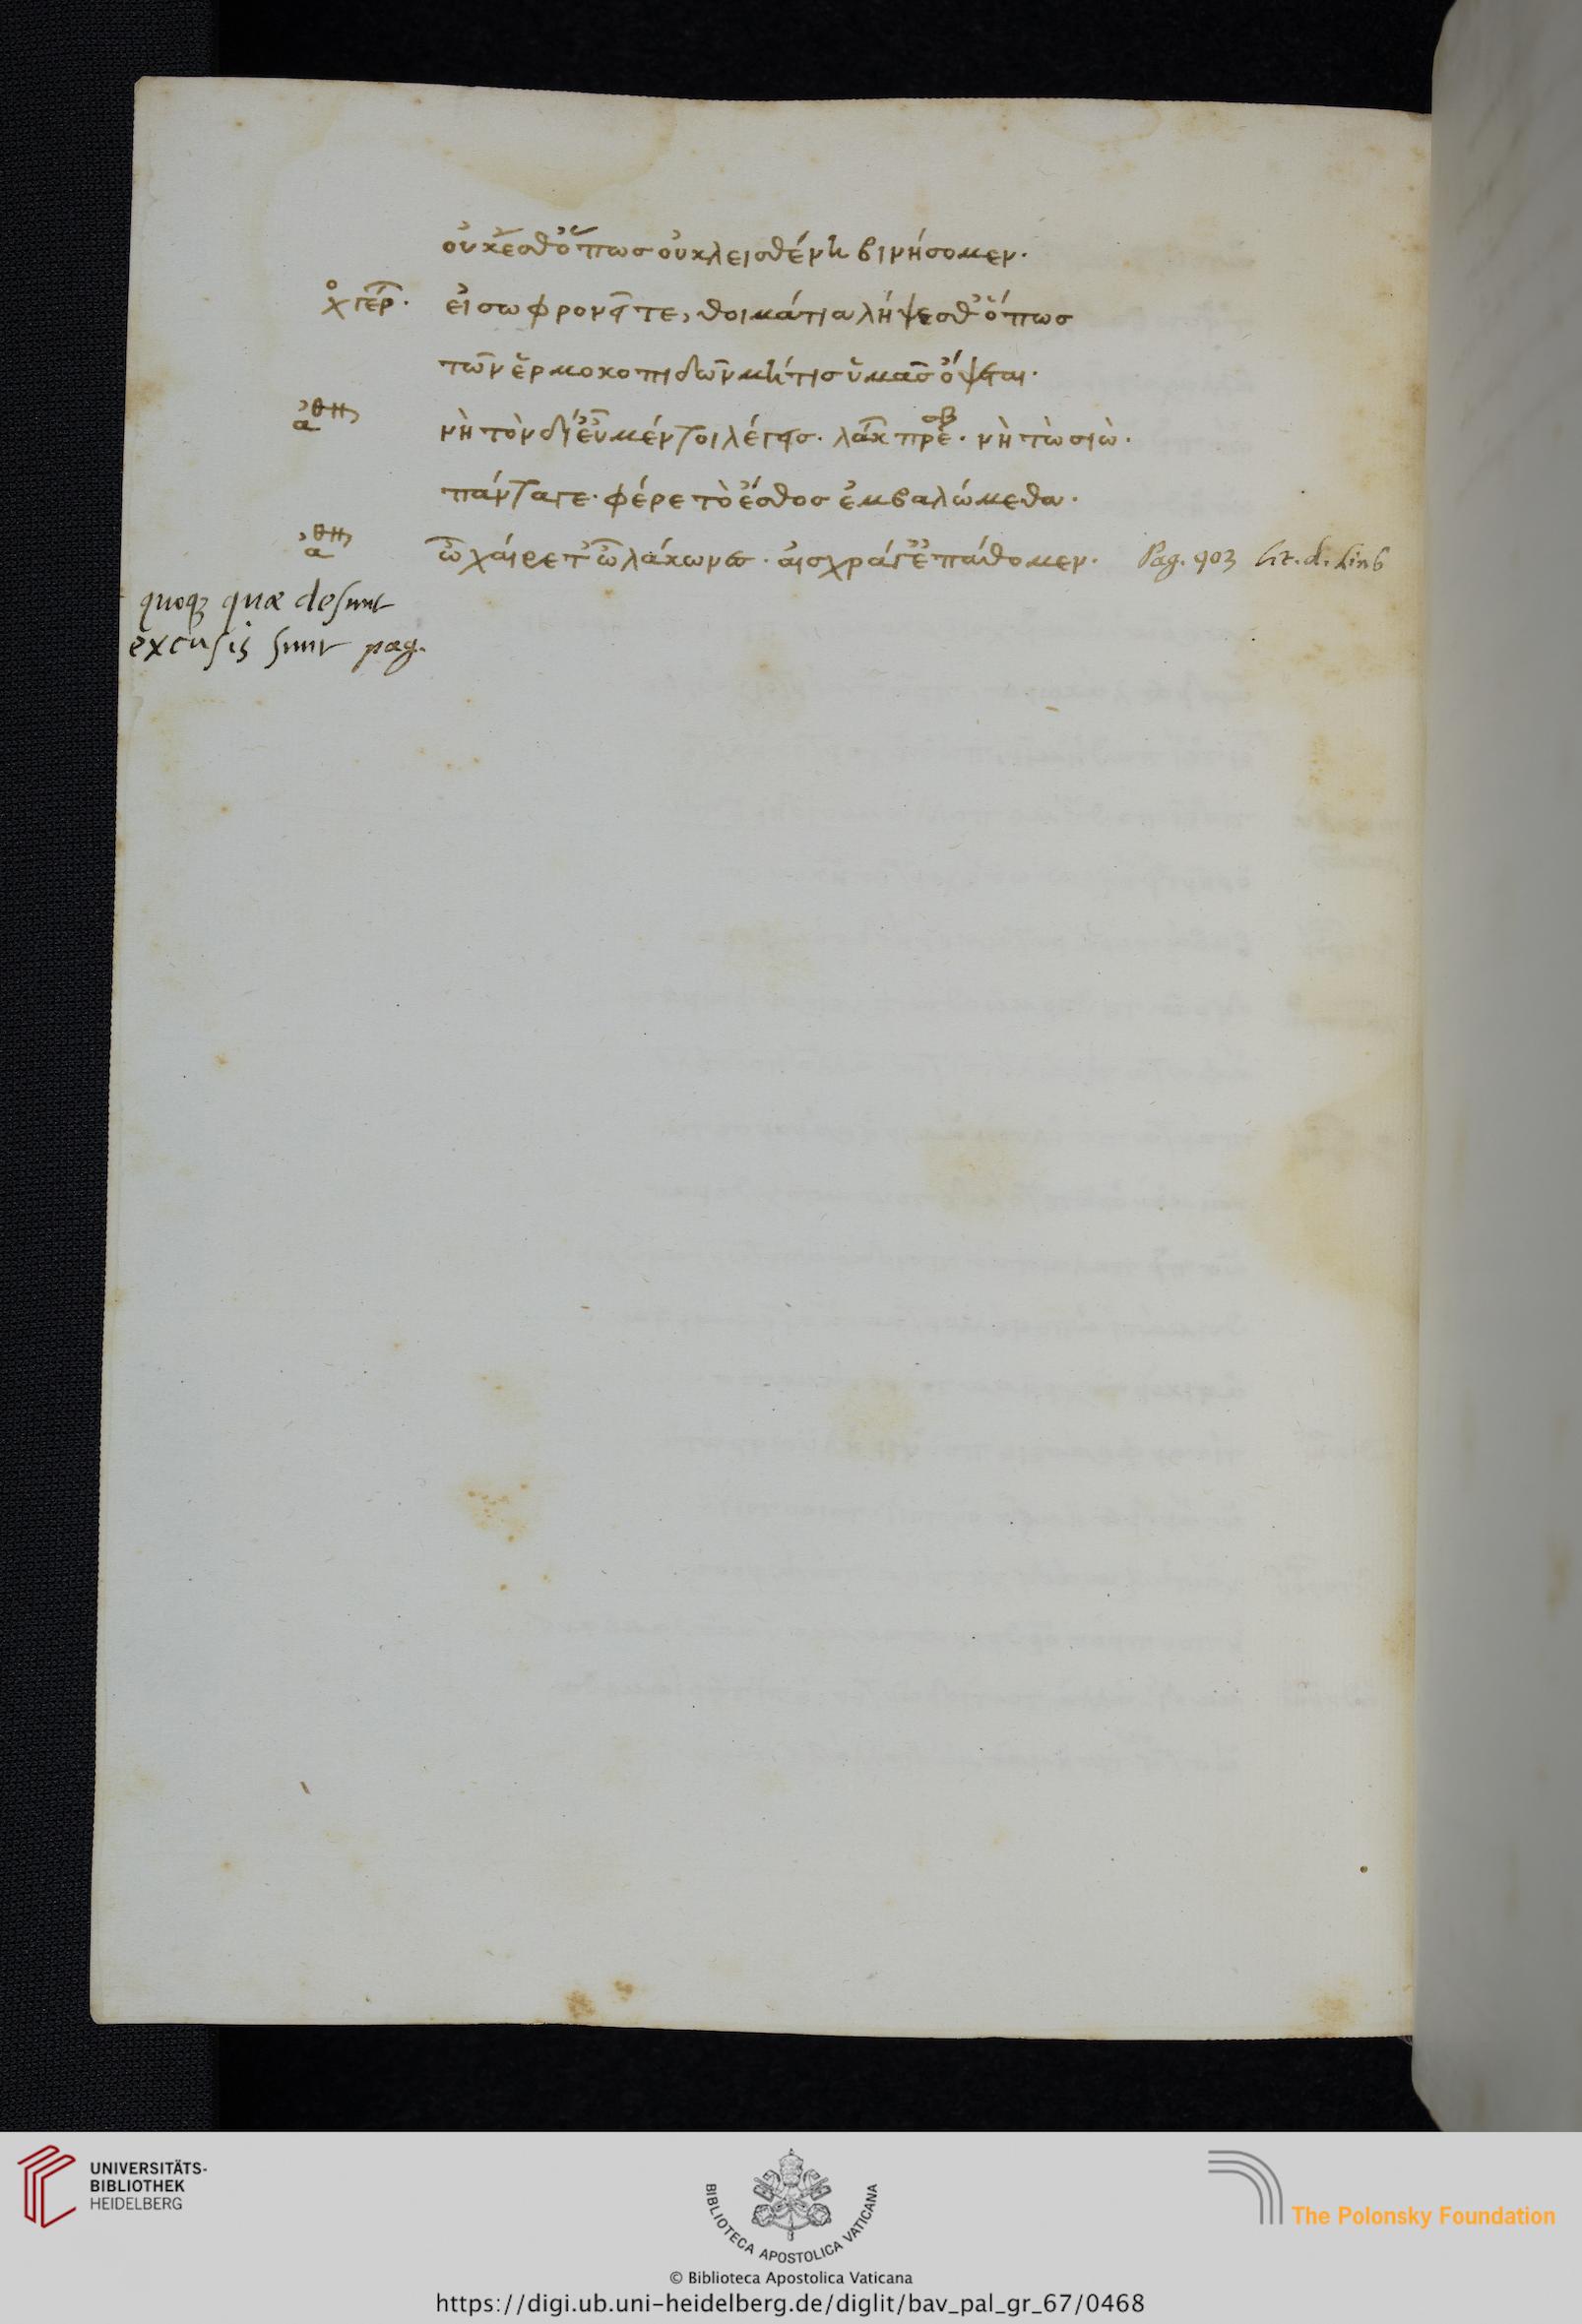 οὐκ ἔσθ ὅπως οὐ κλεισθένη βινήσομεν.
χο γερ. εἰ σωφρονεῖτε, θοἰμάτια λήψεσθ ὅπως
τῶν ἑρμοκοπιδῶν μή τισ ὑμᾶσ ὄψεται.
ἀθη νὴ τὸν δί εὖ μέντοι λέγεισ. λάκ πρέσβ. νὴ τὼ σιὼ.
πάνταγε. φέρε τὸ ἔσθοσ ἐμβαλώμεθα.
ἀθη ὦ χαίρετ ὦ λάκωνεσ. αἰσχρά γ ἐπάθομεν. Pag. 903 lit. d. lin 6
quoq; quæ desunt
excusis sunt pag.
UNIVERSITÄTS-
BIBLIOTHEK
HEIDELBERG
BIBLIOTECA APOSTOLICA VATICANA
The Polonsky Foundation
© Biblioteca Apostolica Vaticana
https://digi.ub.uni-heidelberg.de/diglit/bav_pal_gr_67/0468